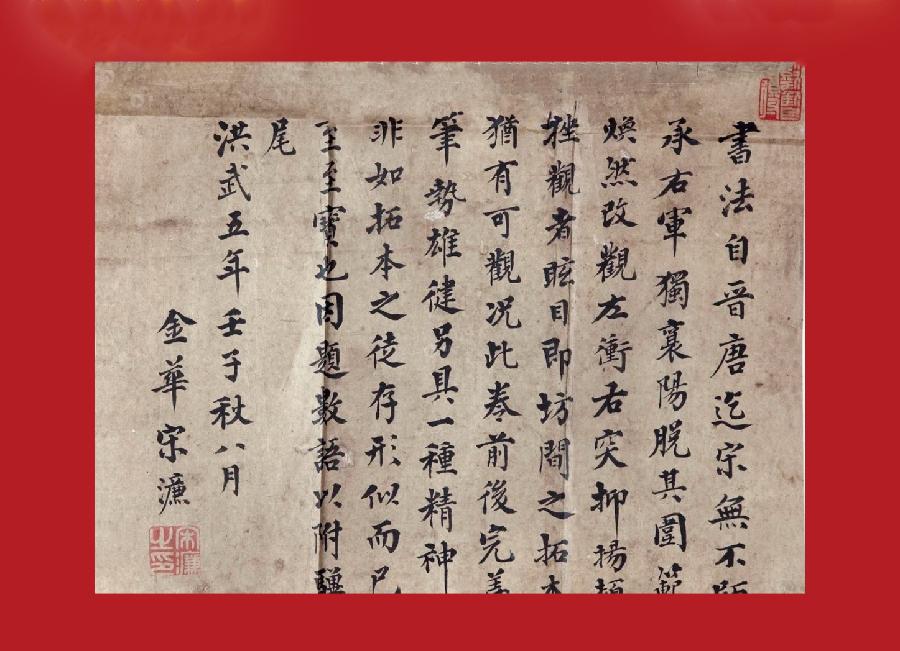 書法自晋唐迄宋無不
承右軍獨襄陽脫其圍範
煥然改觀左衝右突抑揚頓
挫觀者眩目即坊間之拓本
猶有可觀況此卷前後完善
筆勢雄健另具一種精神
非如拓本之徒存形似而已
至至寶也因題數語以附驥
尾
洪武五年壬子秋八月
金華宋濂
宋濂之印